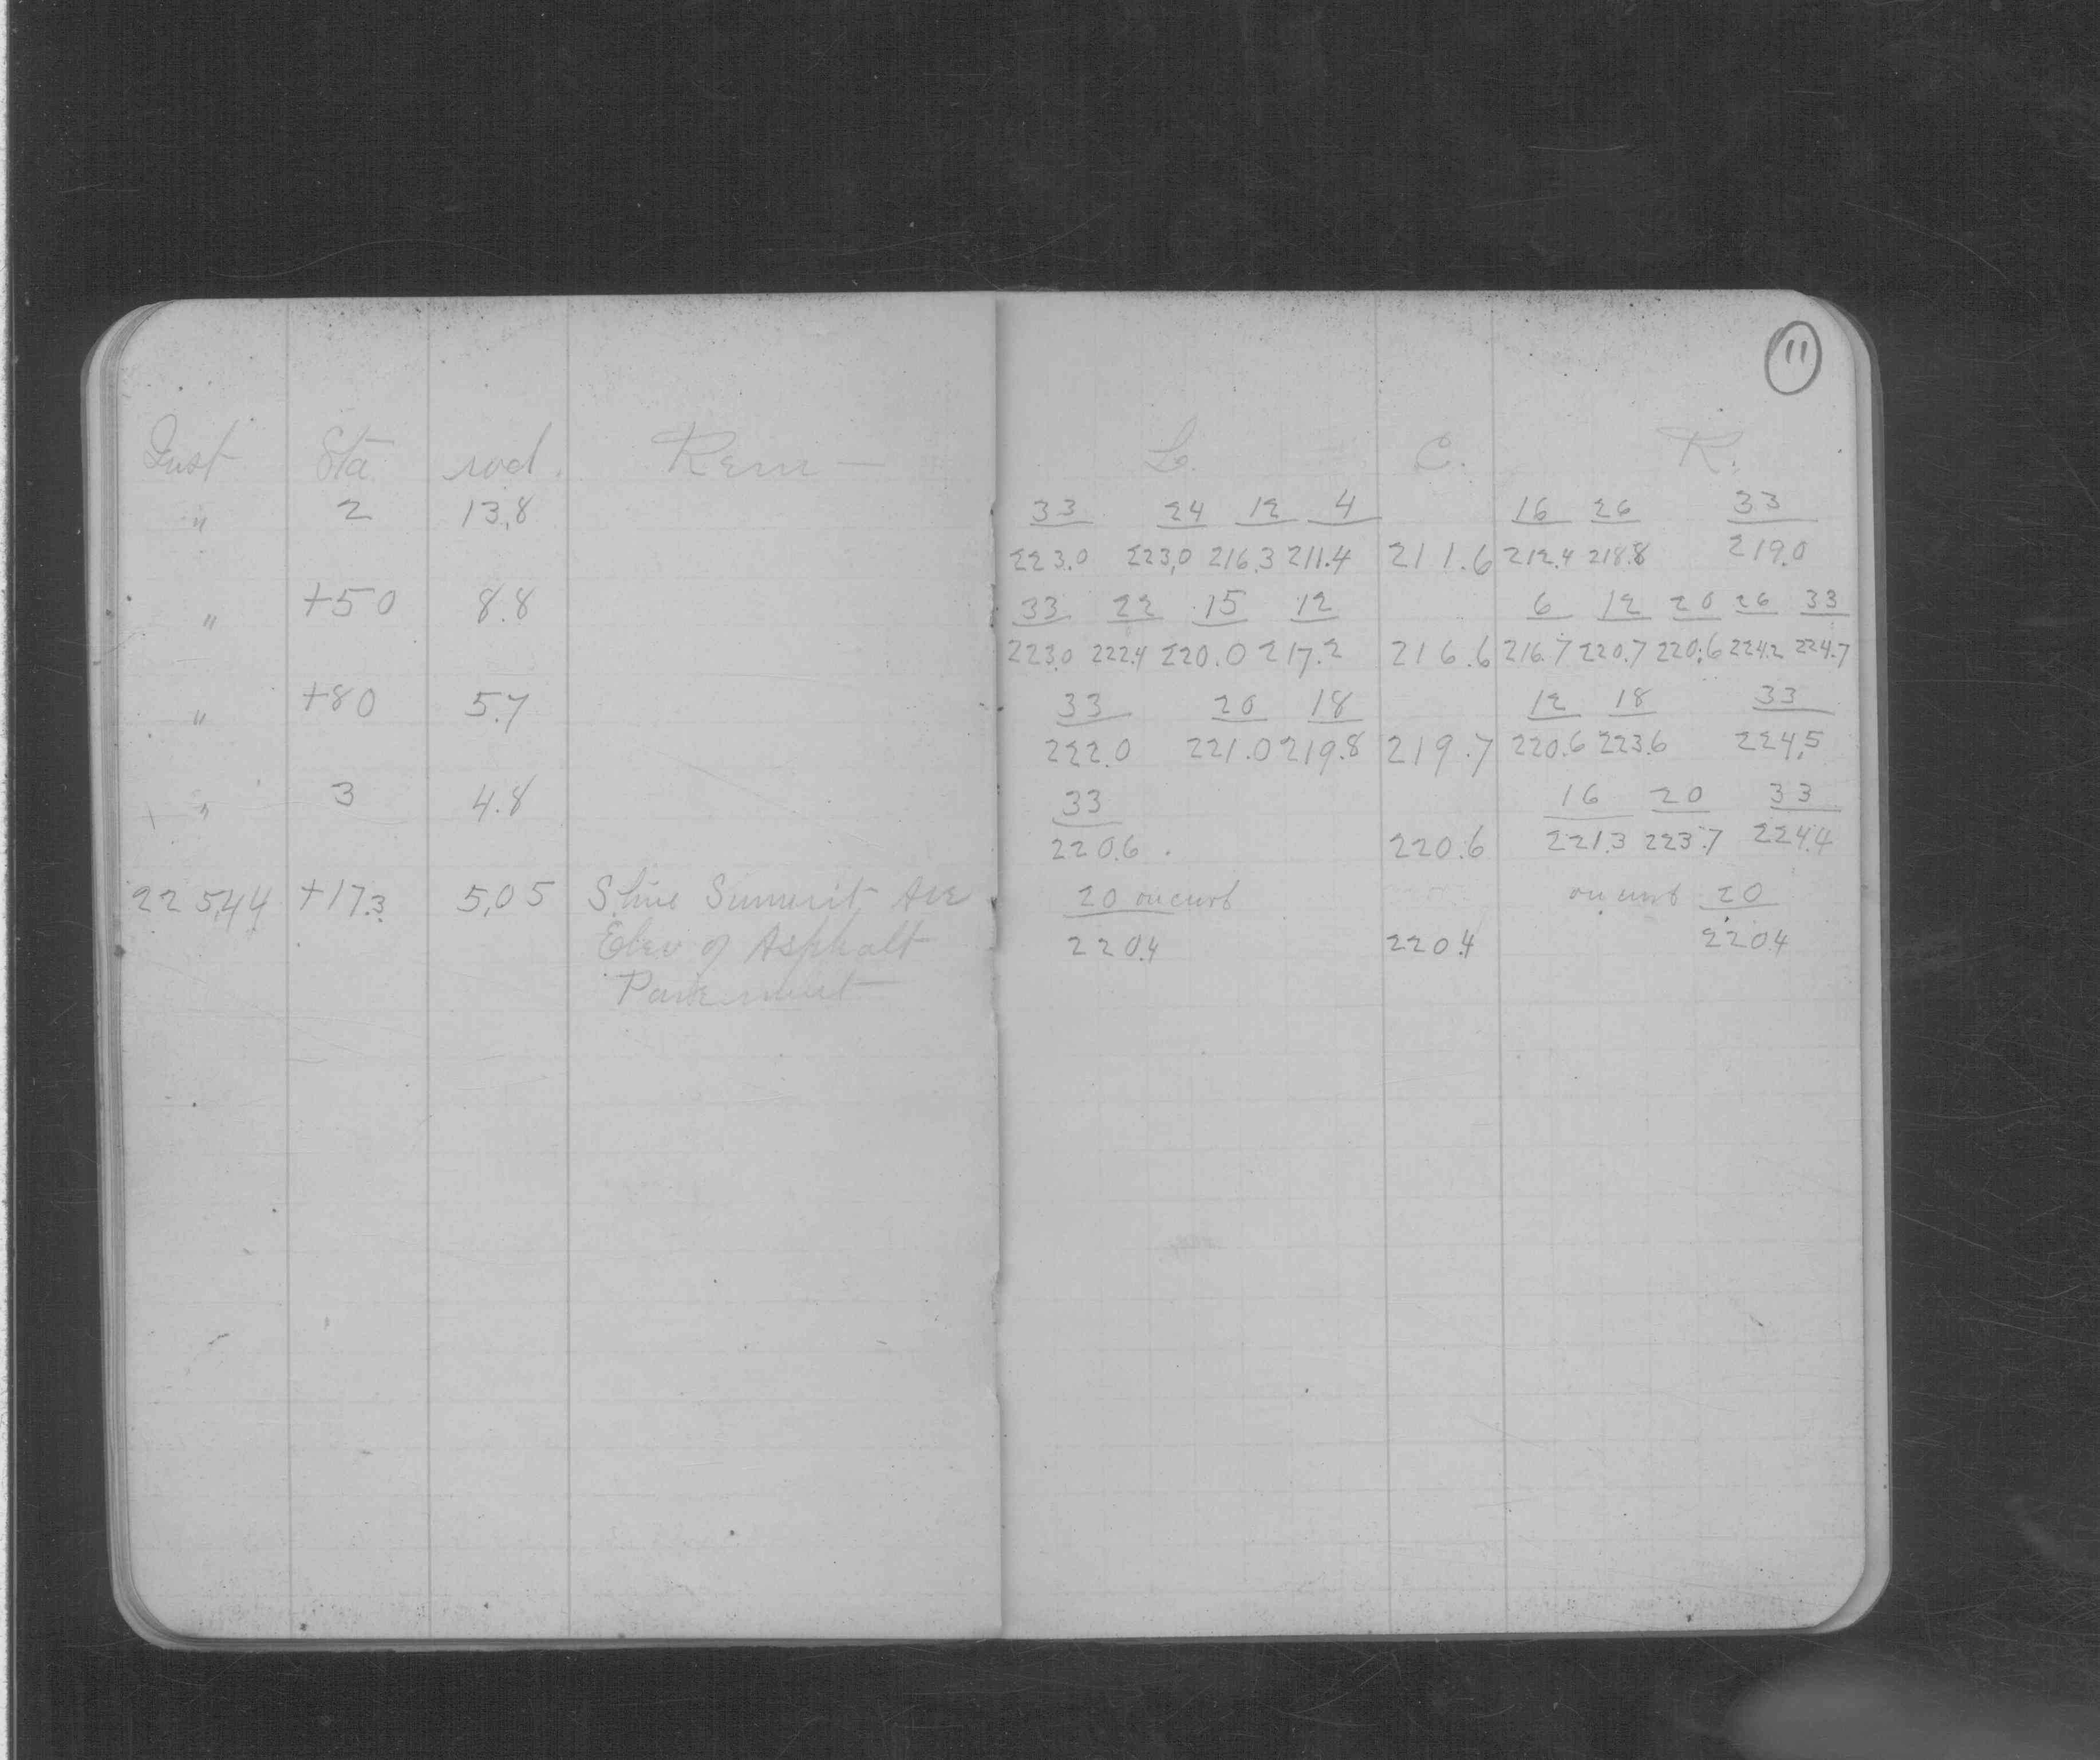 11
Inst Sta. rod. Rem — L. C. R.
" 2 13.8 33 24 12 4 16 26 33
223.0 223.0 216.3 211.4 211.6 212.4 218.8 219.0
" +50 8.8 33 22 15 12 6 12 20 26 33
223.0 222.4 220.0 217.2 216.6 216.7 220.7 220.6 224.2 224.7
" +80 5.7 33 20 18 12 18 33
222.0 221.0 219.8 219.7 220.6 223.6 224.5
" 3 4.8 33 16 20 33
220.6 220.6 221.3 223.7 224.4
225.44 +17.3 5.05 S. line Summit Ave 20 on curb on curb 20
Elev of Asphalt 220.4 220.4 220.4
Pavement